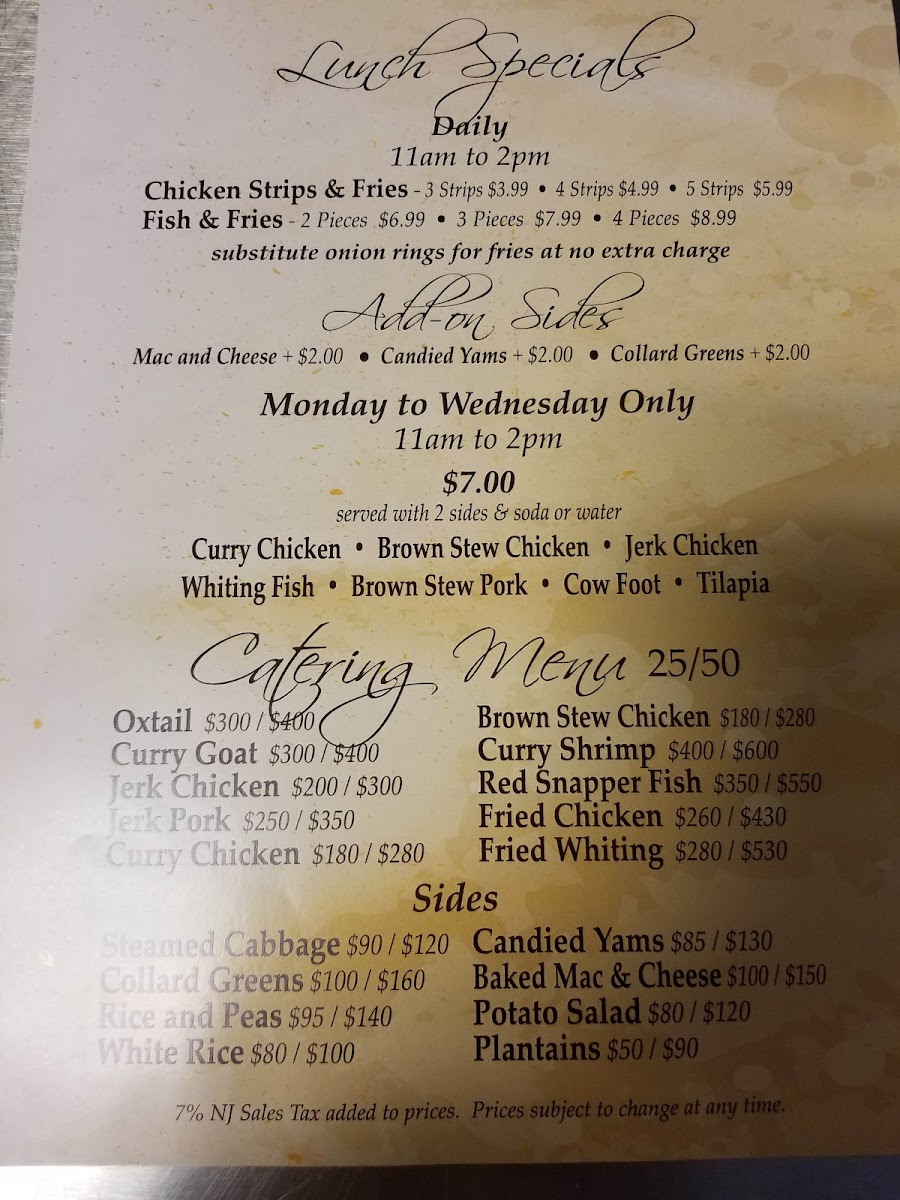 Lunch Specials
Daily
11am to 2pm
Chicken Strips & Fries - 3 Strips $3.99 • 4 Strips $4.99 • 5 Strips $5.99
Fish & Fries - 2 Pieces $6.99 • 3 Pieces $7.99 • 4 Pieces $8.99
substitute onion rings for fries at no extra charge
Add-on Sides
Mac and Cheese + $2.00 • Candied Yams + $2.00 • Collard Greens + $2.00
Monday to Wednesday Only
11am to 2pm
$7.00
served with 2 sides & soda or water
Curry Chicken • Brown Stew Chicken • Jerk Chicken
Whiting Fish • Brown Stew Pork • Cow Foot • Tilapia
Catering Menu 25/50
Oxtail $300 / $400
Curry Goat $300 / $400
Jerk Chicken $200 / $300
Jerk Pork $250 / $350
Curry Chicken $180 / $280
Brown Stew Chicken $180 / $280
Curry Shrimp $400 / $600
Red Snapper Fish $350 / $550
Fried Chicken $260 / $430
Fried Whiting $280 / $530
Sides
Steamed Cabbage $90 / $120
Collard Greens $100 / $160
Rice and Peas $95 / $140
White Rice $80 / $100
Candied Yams $85 / $130
Baked Mac & Cheese $100 / $150
Potato Salad $80 / $120
Plantains $50 / $90
7% NJ Sales Tax added to prices. Prices subject to change at any time.